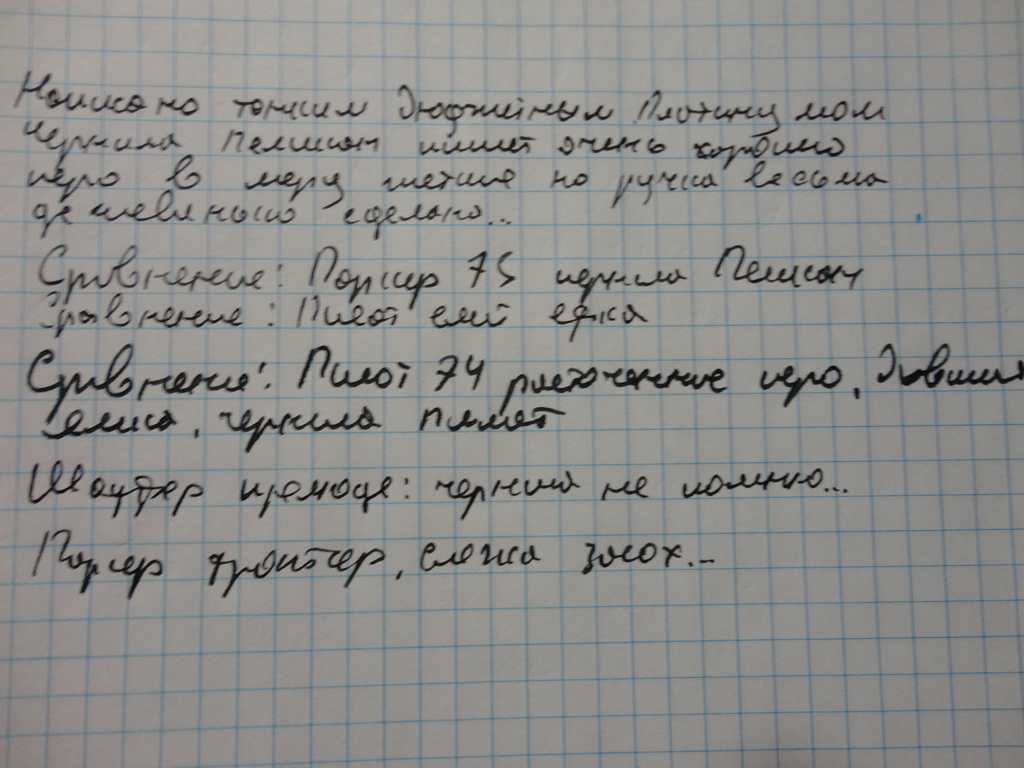 Написано тонким Дюфжетным Плотинумом
чернила Пеликан пишет очень хорошо
перо в меру мягкое но ручка весьма
дешевенько сделано...
Сравнение: Паркер 75 чернила Пеликан
Сравнение: Пилот елит ефка
Сравнение: Пилот 74 расточенное перо,
чернила пилот
Шауфер премюде: чернил не помню...
Паркер фронтиер, слегка засох...